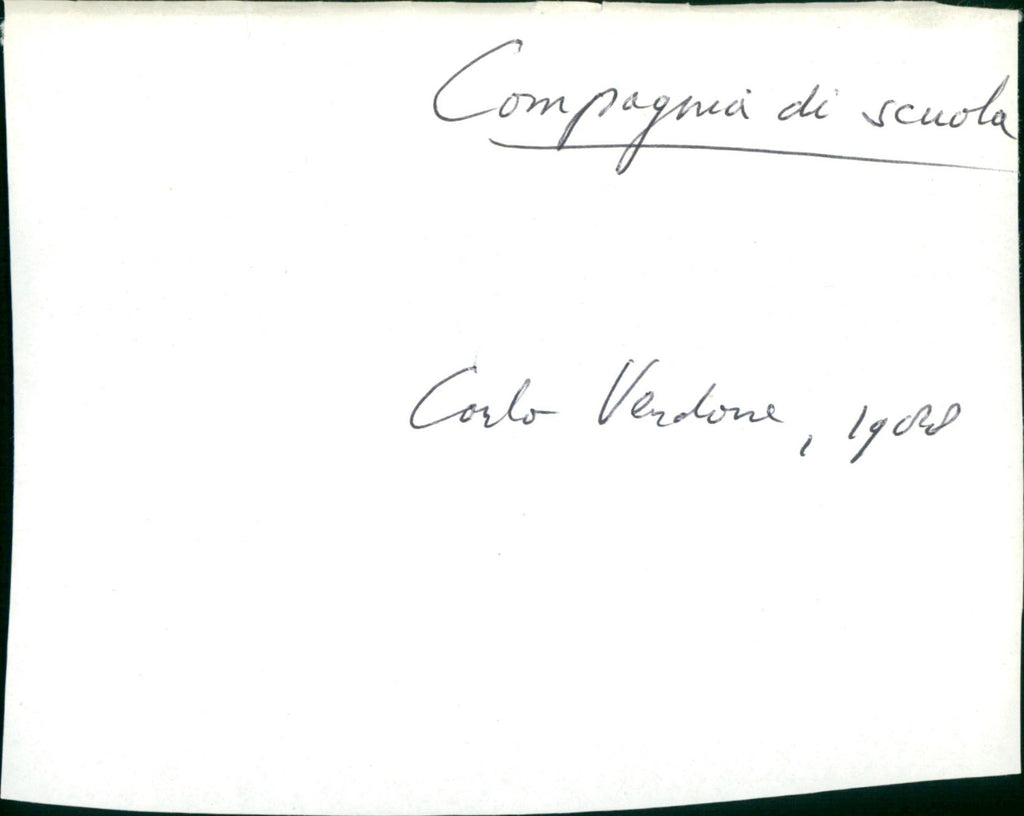 Compagnia di scuola
Carlo Verdone, 1988